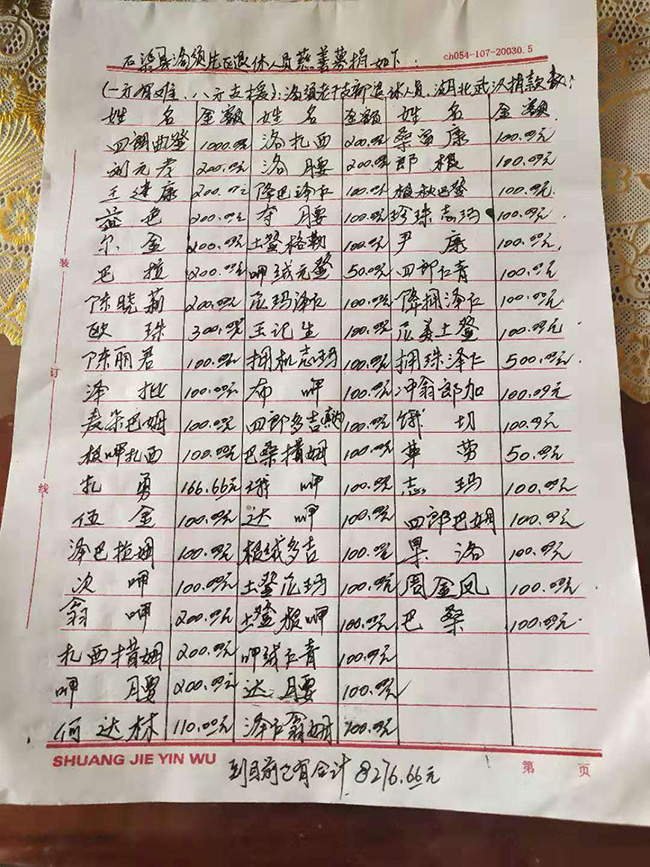 ch054-107-20030.5
石渠县洛须片区退休人员慈善募捐如下:
(一方有难、八方支援):洛须老干支部退休人员、湖北武汉捐款数:
姓 名 金额 姓 名 金额 姓 名 金额
四朗曲登 1000.00元 洛扎西 200.00元 桑登康 100.00元
刘元孝 200.00元 洛腰 200.00元 郎根 100.00元
王建康 200.00元 降巴泽仁 100.00元 根秋巴登 100.00元
益巴 200.00元 夺腰 100.00元 珍珠志玛 100.00元
尔金 200.00元 土登格勒 100.00元 尹康 100.00元
巴拉 200.00元 呷绒元登 50.00元 四郎仁青 100.00元
陈晓莉 200.00元 尼玛泽仁 100.00元 降拥泽仁 100.00元
欧珠 300.00元 王记生 100.00元 尼美土登 100.00元
陈丽君 100.00元 拥机志玛 100.00元 拥珠泽仁 500.00元
泽批 100.00元 布呷 100.00元 冲翁郎加 100.00元
袁示巴姆 100.00元 四郎多吉 100.00元 饿切 100.00元
根呷扎西 100.00元 巴桑措姆 100.00元 华劳 50.00元
扎勇 166.66元 呷 100.00元 志玛 100.00元
伍金 100.00元 达呷 100.00元 四郎巴姆 100.00元
泽巴拉姆 100.00元 根绒多吉 100.00元 果洛 100.00元
次呷 100.00元 土登尼玛 100.00元 周金凤 100.00元
翁呷 200.00元 土登根呷 100.00元 巴桑 100.00元
扎西措姆 200.00元 呷绒仁青 100.00元
呷腰 200.00元 达腰 100.00元
何达林 110.00元 泽仁翁姆 100.00元
装
订
线
SHUANG JIE YIN WU 第 页
到目前已有合计 8276.66元